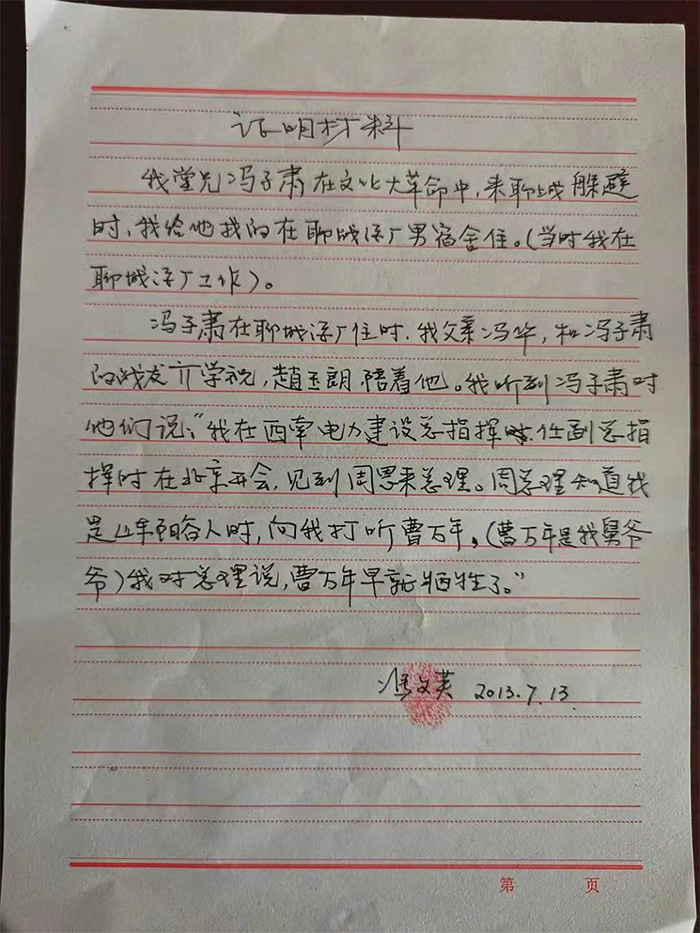 证明材料
我堂兄冯子肃在文化大革命中,来聊城躲避
时,我给他找的在聊城厂男宿舍住。(当时我在
聊城厂工作)。
冯子肃在聊城厂住时.我父亲冯华,和冯子肃
的战友亓学祝,趙玉朗陪着他。我听到冯子肃对
他们说:"我在西南电力建设总指挥.任副总指
挥时在北京开会,见到周恩来总理。周总理知道我
是山东阳谷人时,向我打听曹万年,(曹万年是我舅爷
爷)我对总理说,曹万年早就牺牲了。"
冯文英 2013.7.13.
第 页